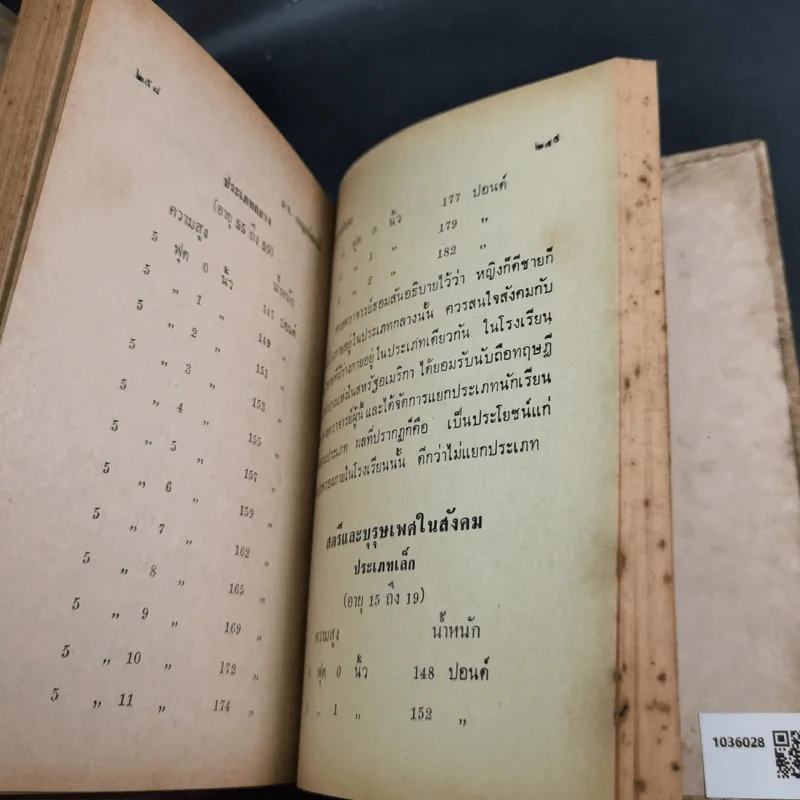 ๒๕๔
ประเภทกลาง
(อายุ 55 ถึง 59)
ความสูง น้ำหนัก
5 ฟุต 0 นิ้ว 147 ปอนด์
5 „ 1 „ 149 „
5 „ 2 „ 151 „
5 „ 3 „ 153 „
5 „ 4 „ 155 „
5 „ 5 „ 157 „
5 „ 6 „ 159 „
5 „ 7 „ 162 „
5 „ 8 „ 165 „
5 „ 9 „ 169 „
5 „ 10 „ 172 „
5 „ 11 „ 174 „
๒๕๕
ฟุต 0 นิ้ว 177 ปอนด์
„ 1 „ 179 „
„ 2 „ 182 „
ศาสตราจารย์ธอมสันอธิบายไว้ว่า หญิงก็ดีชายก็
อยู่ในประเภทกลางนั้น ควรสนใจสังคมกับ
ที่มีร่างกายอยู่ในประเภทเดียวกัน ในโรงเรียน
บางแห่งในสหรัฐอเมริกา ได้ยอมรับนับถือทฤษฎี
ศาสตราจารย์ผู้นี้ และได้จัดการแยกประเภทนักเรียน
ประเภท ผลที่ปรากฏก็คือ เป็นประโยชน์แก่
ภายในโรงเรียนนั้น ดีกว่าไม่แยกประเภท
สตรีและบุรุษเพศในสังคม
ประเภทเล็ก
(อายุ 15 ถึง 19)
ความสูง น้ำหนัก
ฟุต 0 นิ้ว 148 ปอนด์
„ 1 „ 152 „
1036028